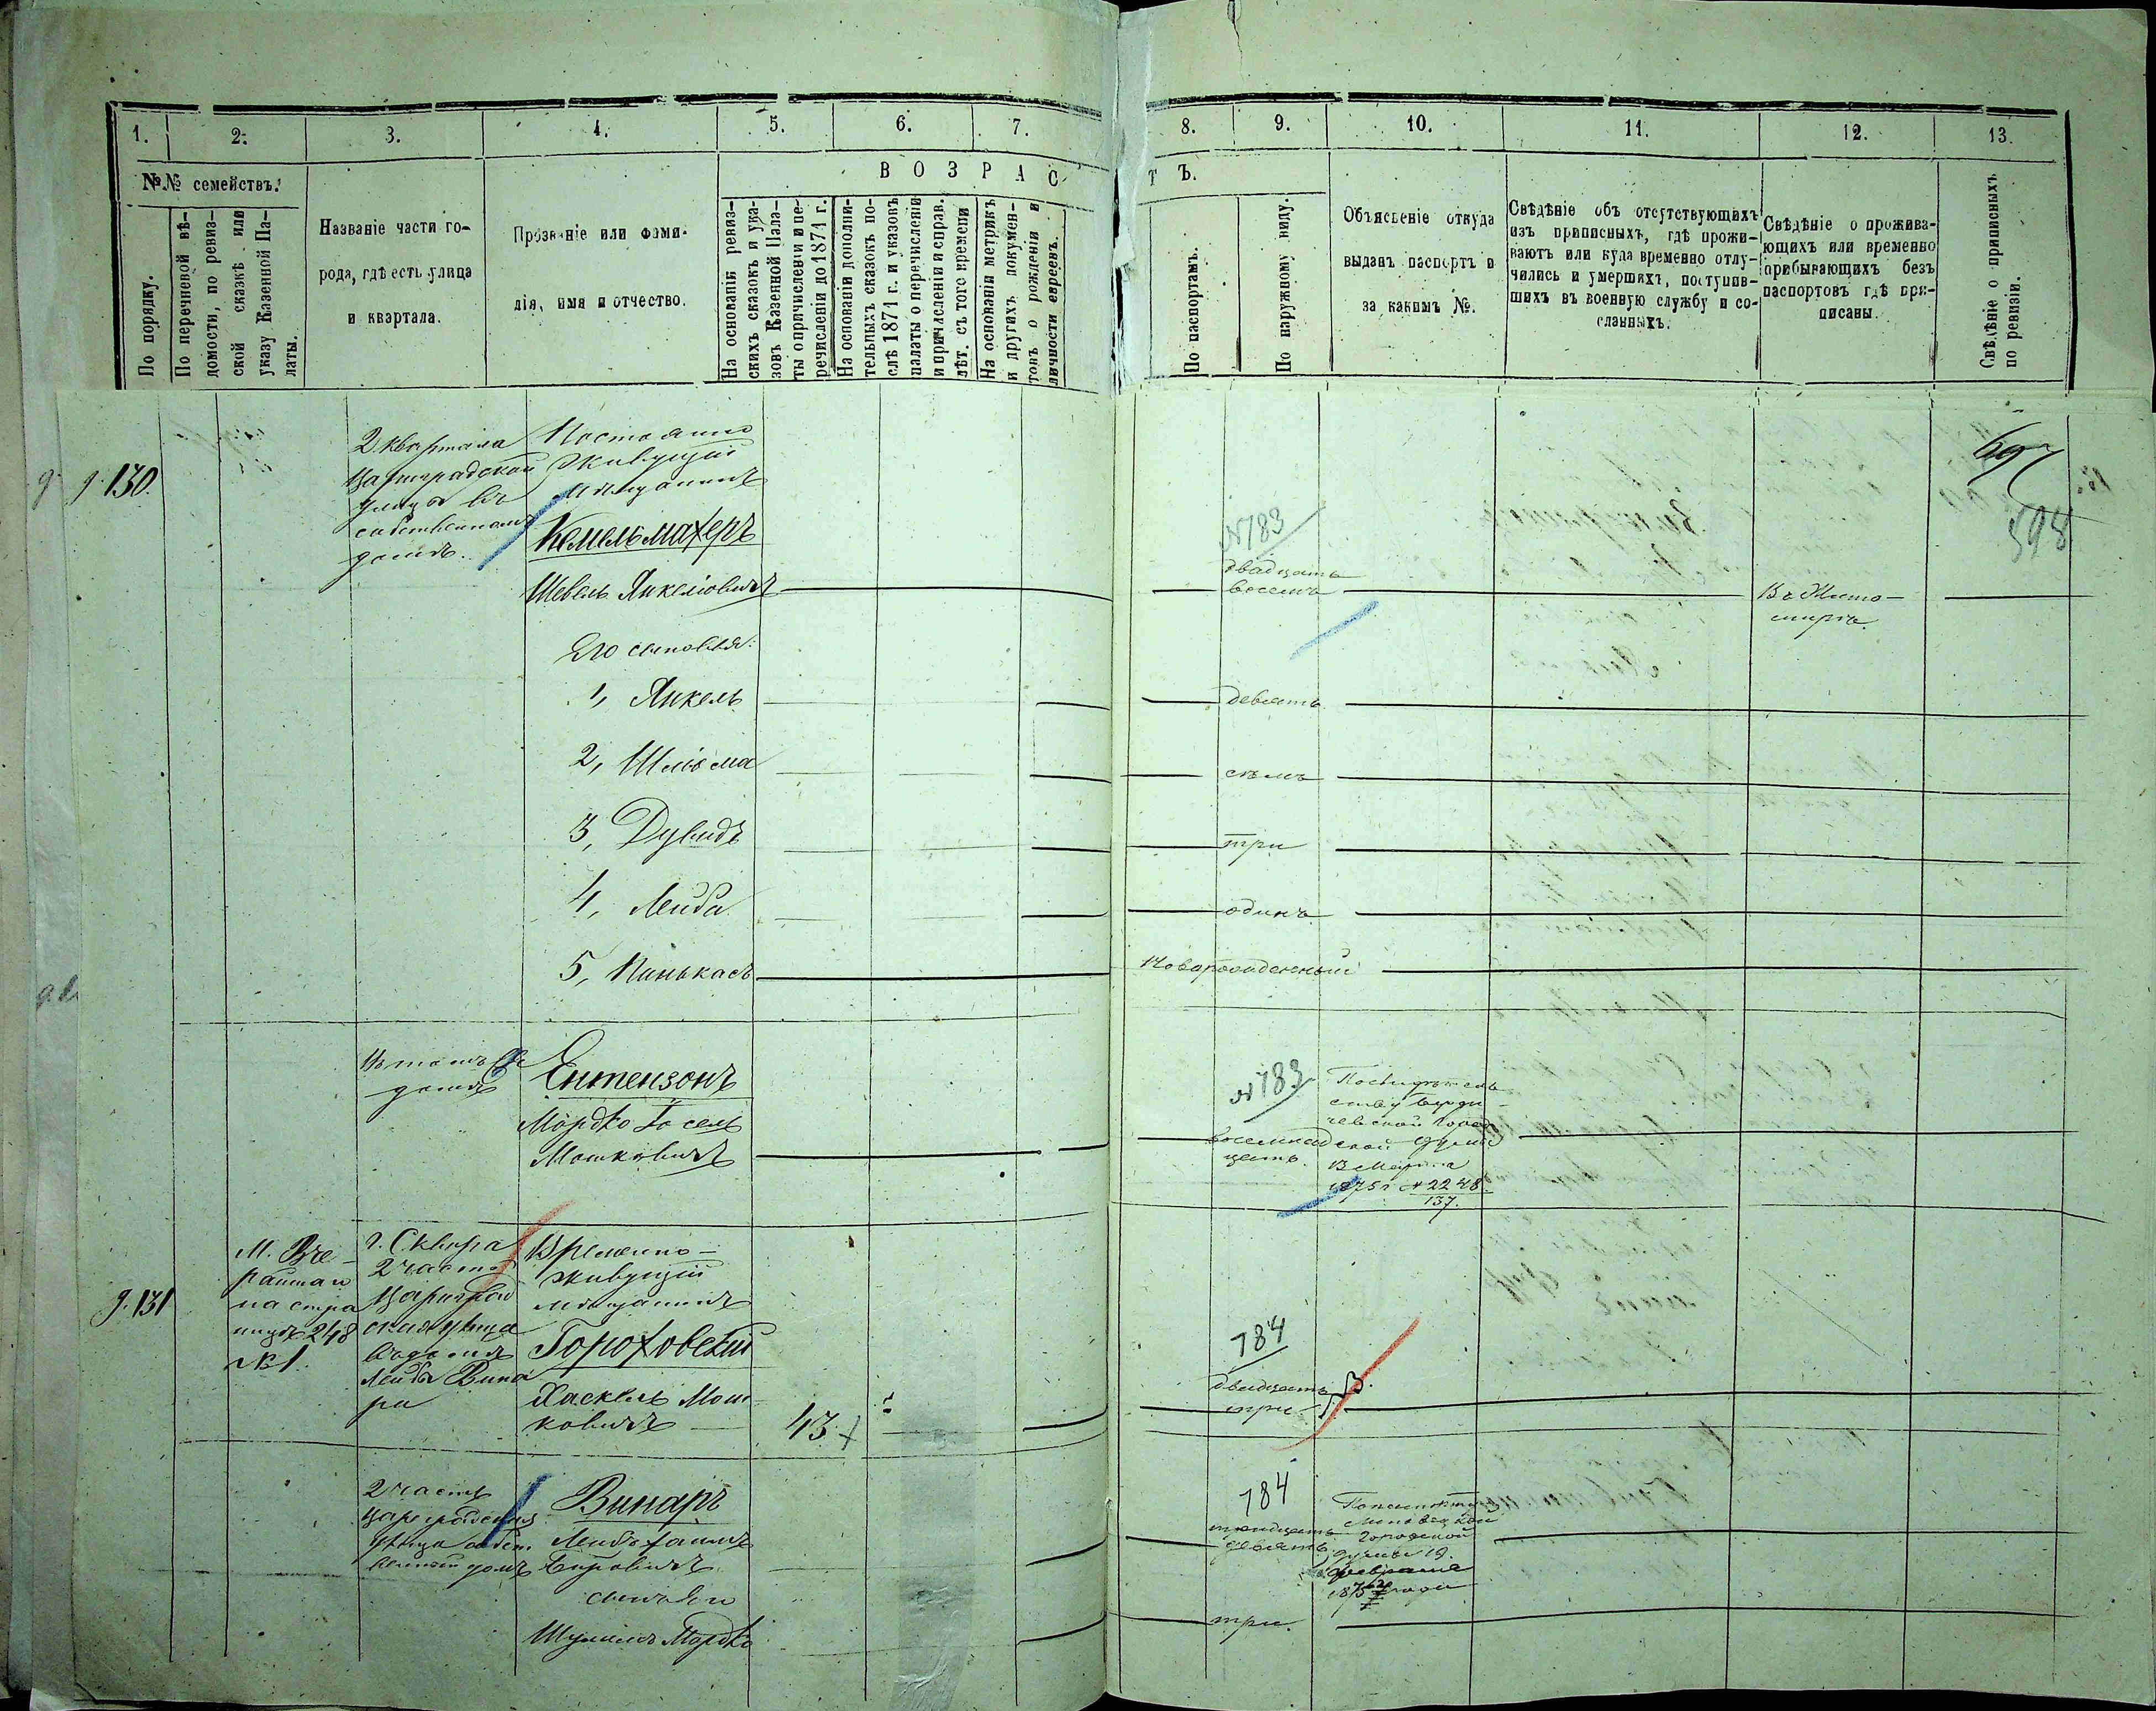 1.
2.
3.
4.
5.
6.
7.
8.
9.
10.
11.
12.
13.
№№ семействъ.
По порядку.
По перечневой вѣ-
домости, по ревиз-
ской сказкѣ или
указу Казенной Па-
латы.
Названіе части го-
рода, гдѣ есть улица
и квартала.
Прозваніе или фами-
лія, имя и отчество.
ВОЗРАС
ТЪ.
На основаніи ревиз-
скихъ сказокъ и ука-
зовъ Казенной Пала-
ты о причисленіи и пе-
речисленіи до 1871 г.
На основаніи дополни-
тельныхъ сказокъ по-
слѣ 1871 г. и указовъ
палаты о перечисленіи
и причисленіи и справ.
лѣт. съ того времени
На основаніи метрикъ
и другихъ докумен-
товъ о рожденіи и
личности евреевъ.
По паспортамъ.
По наружному виду.
Объясненіе откуда
выданъ паспортъ и
за какимъ №.
Свѣдѣніе объ отсутствующихъ
изъ приписныхъ, гдѣ прожи-
ваютъ или куда временно отлу-
чились и умершихъ, поступив-
шихъ въ военную службу и со-
сланныхъ.
Свѣдѣніе о прожива-
ющихъ или временно
прибывающихъ безъ
паспортовъ гдѣ при-
писаны.
Свѣдѣніе о приписныхъ
по ревизіи.
130.
2 квартала
Цариградской
улицы въ
собственномъ
домѣ.
Постоянно
живущій
мѣщанинъ
Кемельмахеръ
Шевель Янкелiовичъ
№783
двадцать
восемь
Въ Жито-
мирѣ.
598
Его сыновья:
1, Янкель
девять
2, Шліома
семь
3, Дувидъ
три
4, Лейба
одинъ
5, Пинькасъ
Новорожденный
Въ томъ же
домѣ
Ентензонъ
Мордко Іосель
Мошковичъ
№783
восемнад
цать.
По свидѣтель
ству Берди-
чевской город
ской думы
Марта
1875 г №2248.
137.
131
М. Вче
райша и
на стра
ницѣ 248
№1.
г. Сквира
2 часть
Цариград
ская улица
въ домѣ
Лейбы Вина
ра
Временно-
живущій
мѣщанинъ
Гороховскій
Хаскель Мош-
ковичъ
43
784
двадцать
три
2 часть
Цареградская
улица собст
венный домъ
Винаръ
Лейбъ Хаимъ
Беровичъ
сынъ Его
Шулимъ Мордко
784
тридцать
девять
городской
думы 19
февраля
1875 года
три.